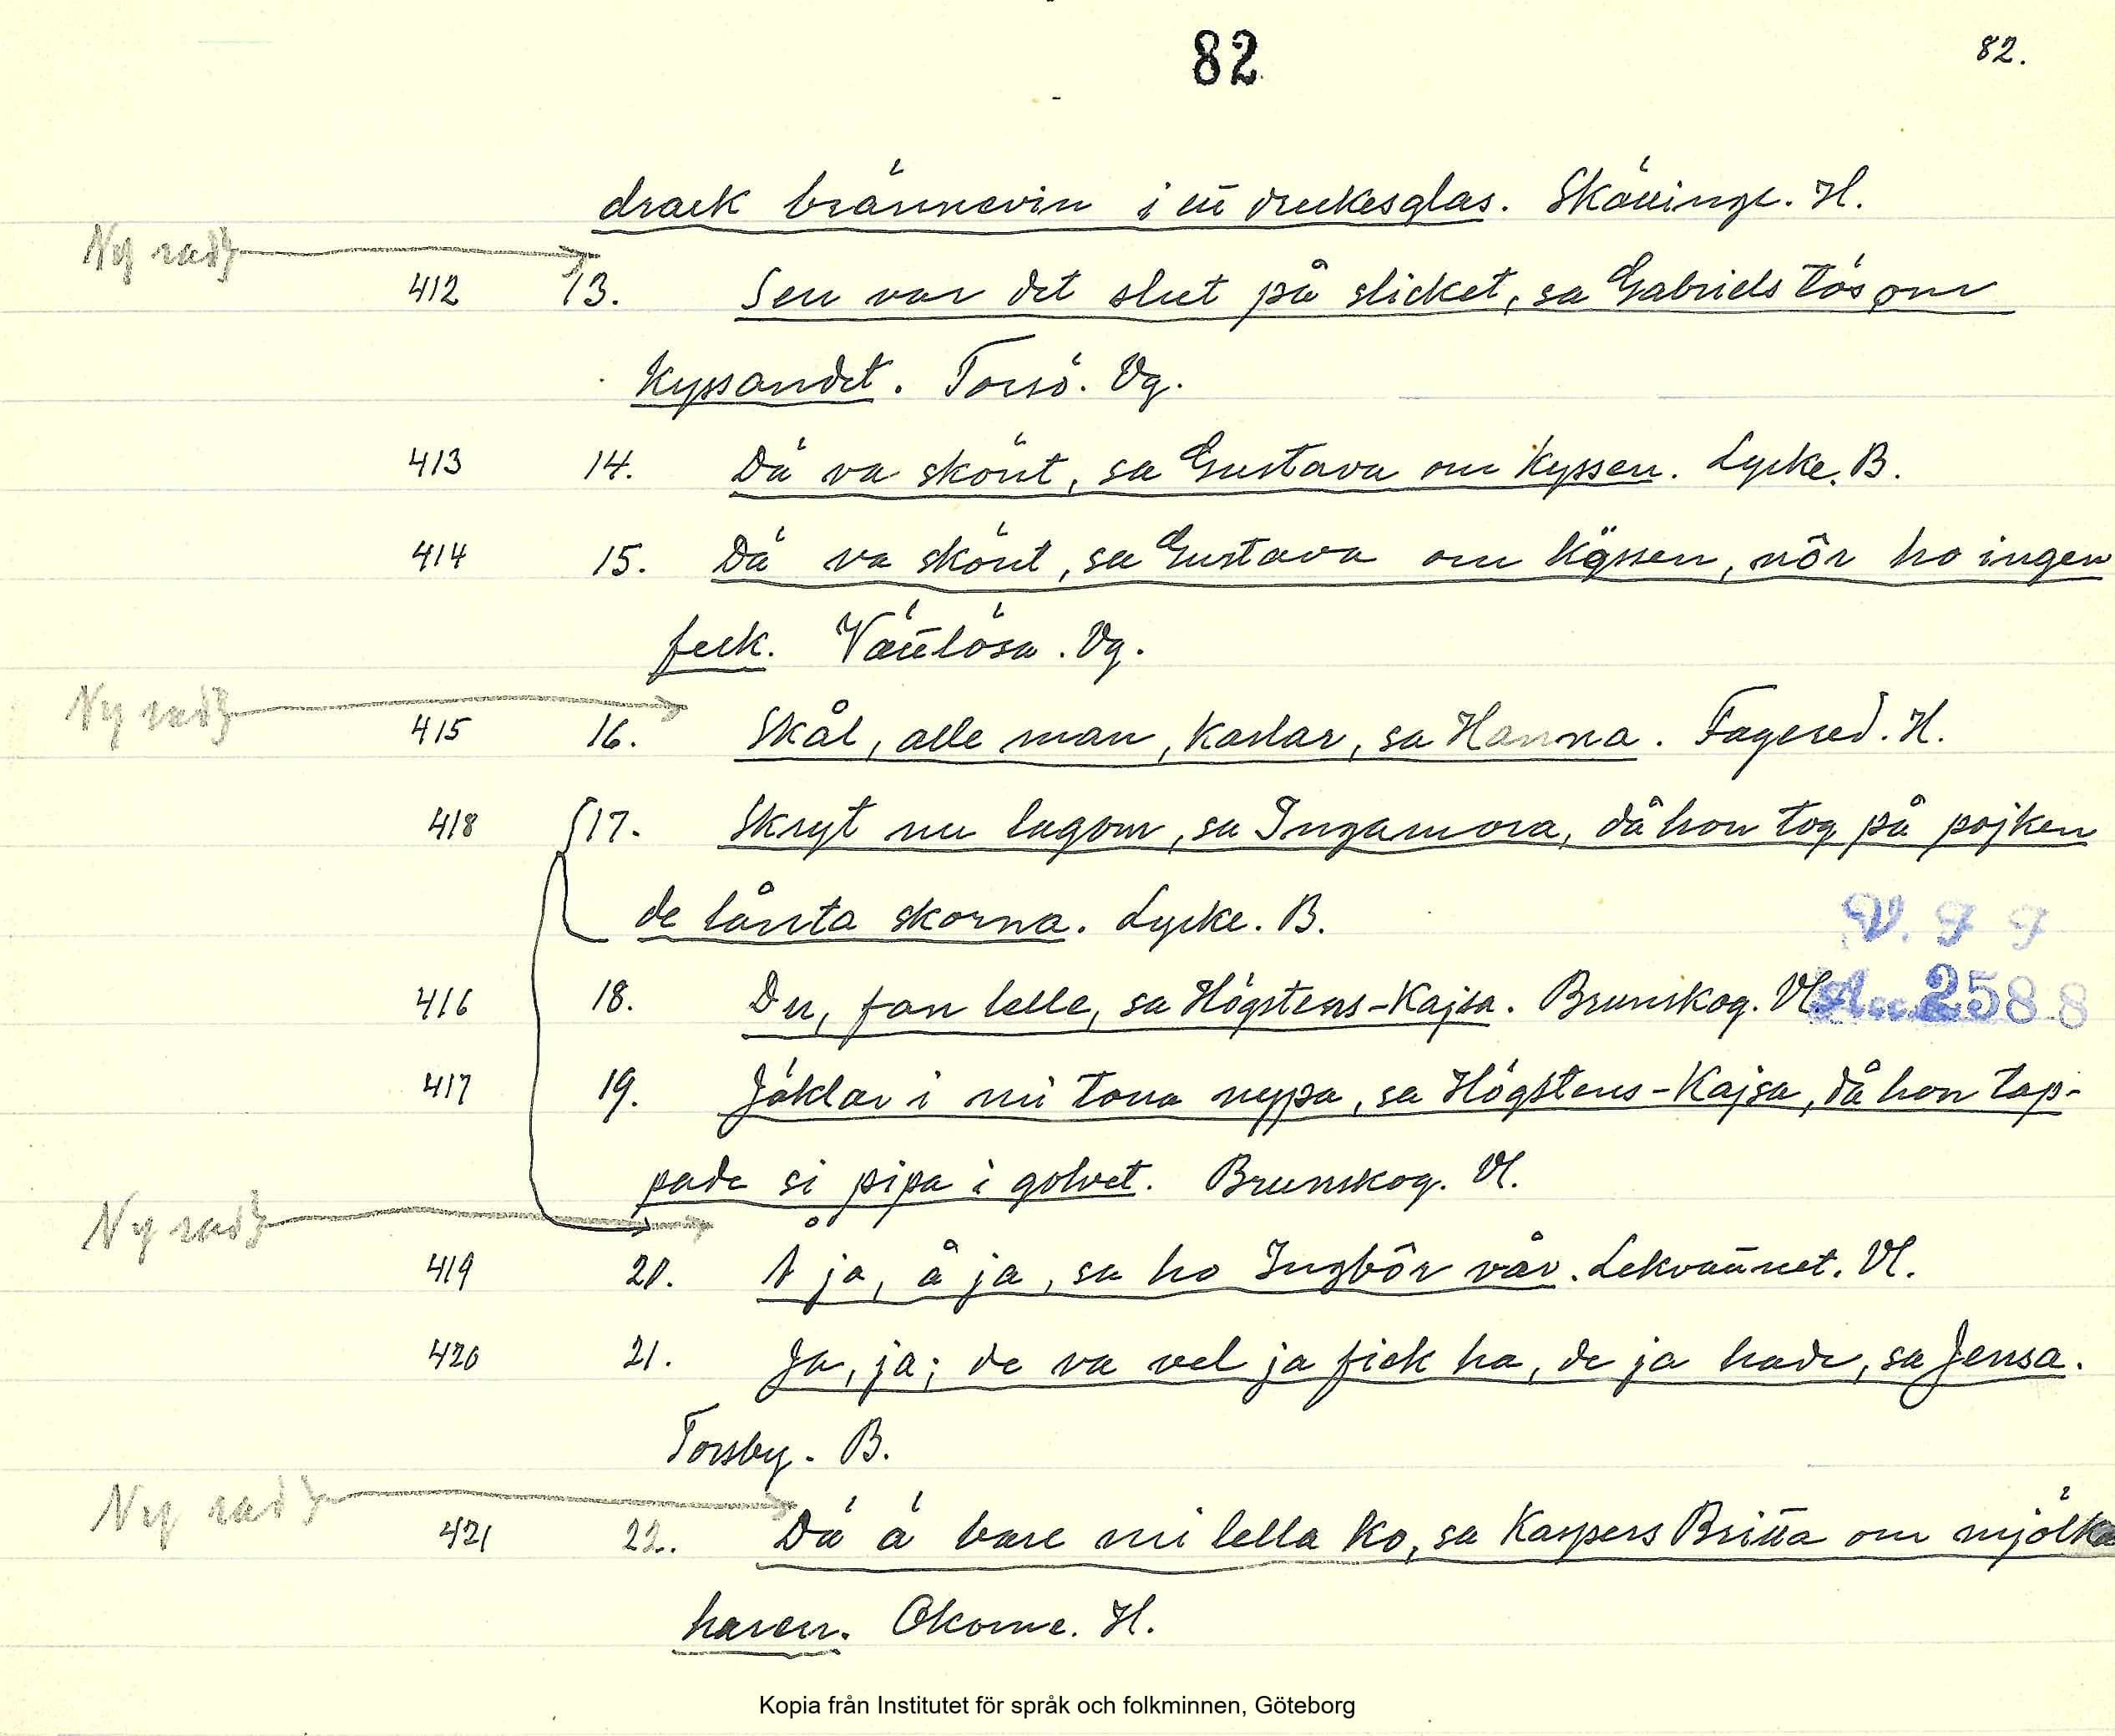 82
82.
drack brännevin i en̄ dreckesglas. Skällinge. H.
Ny rad
412 13. Sen var det slut på slicket, sa Gabriels tös om
kyssandet. Torsö. Vg.
413 14. Dä va skönt, sa Gustava om kyssen. Lycke. B.
414 15. Dä va skönt, sa Gustava om kÿssen, nôr ho ingen
feck. Vän̄lösa. Vg.
Ny rad
415 16. Skål, alle man, karlar, sa Hanna. Fagered. H.
418 17. Skryt nu lagom, sa Ingamora, då hon tog på pojken
de lånta skorna. Lycke. B.
V. F F
416 18. Du, fan lelle, sa Högstens-Kajsa. Brunskog. Vl.
Acc. 2588
417 19. Jäklar i mi tona nypa, sa Högstens-Kajsa, då hon tap-
pade si pipa i golvet. Brunskog. Vl.
Ny rad
419 20. Å ja, å ja, sa ho Ingbôr vår. Lekvan̄net. Vl.
420 21. Ja, ja; de va vel ja fick ha, de ja hade, sa Jensa.
Torsby. B.
Ny rad
421 22. Dä ä bare mi lella ko, sa Kaspers Britta om mjölka
haren. Okome. H.
Kopia från Institutet för språk och folkminnen, Göteborg